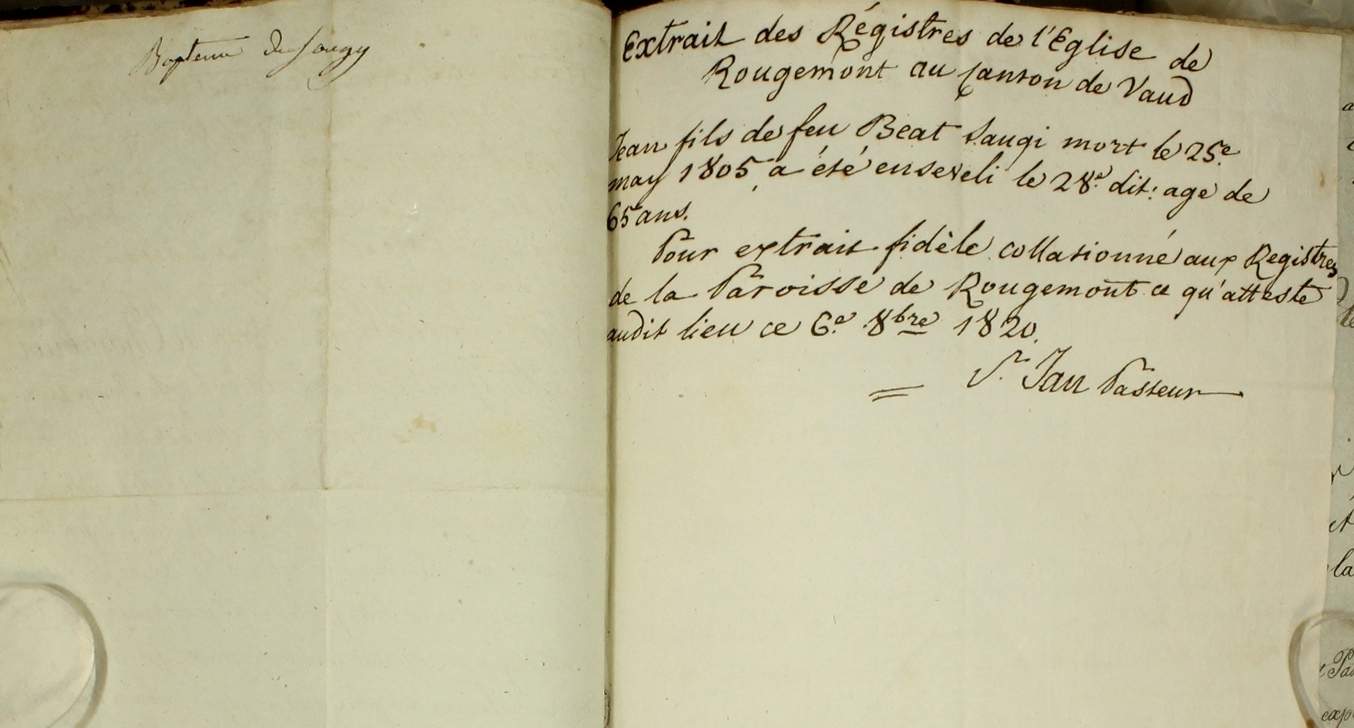 Bapteme de Saugy
Extrait des Régistres de l'Eglise de
Rougemont au Canton de Vaud
Jean fils de feu Beat Saugi mort le 25e
may 1805, a été enseveli le 28e dit: agé de
65 ans.
Pour extrait fidèle collationné aux Registres
de la Paroisse de Rougemont ce qu'atteste
audit lieu ce 6e 8bre 1820.
Jan Pasteur